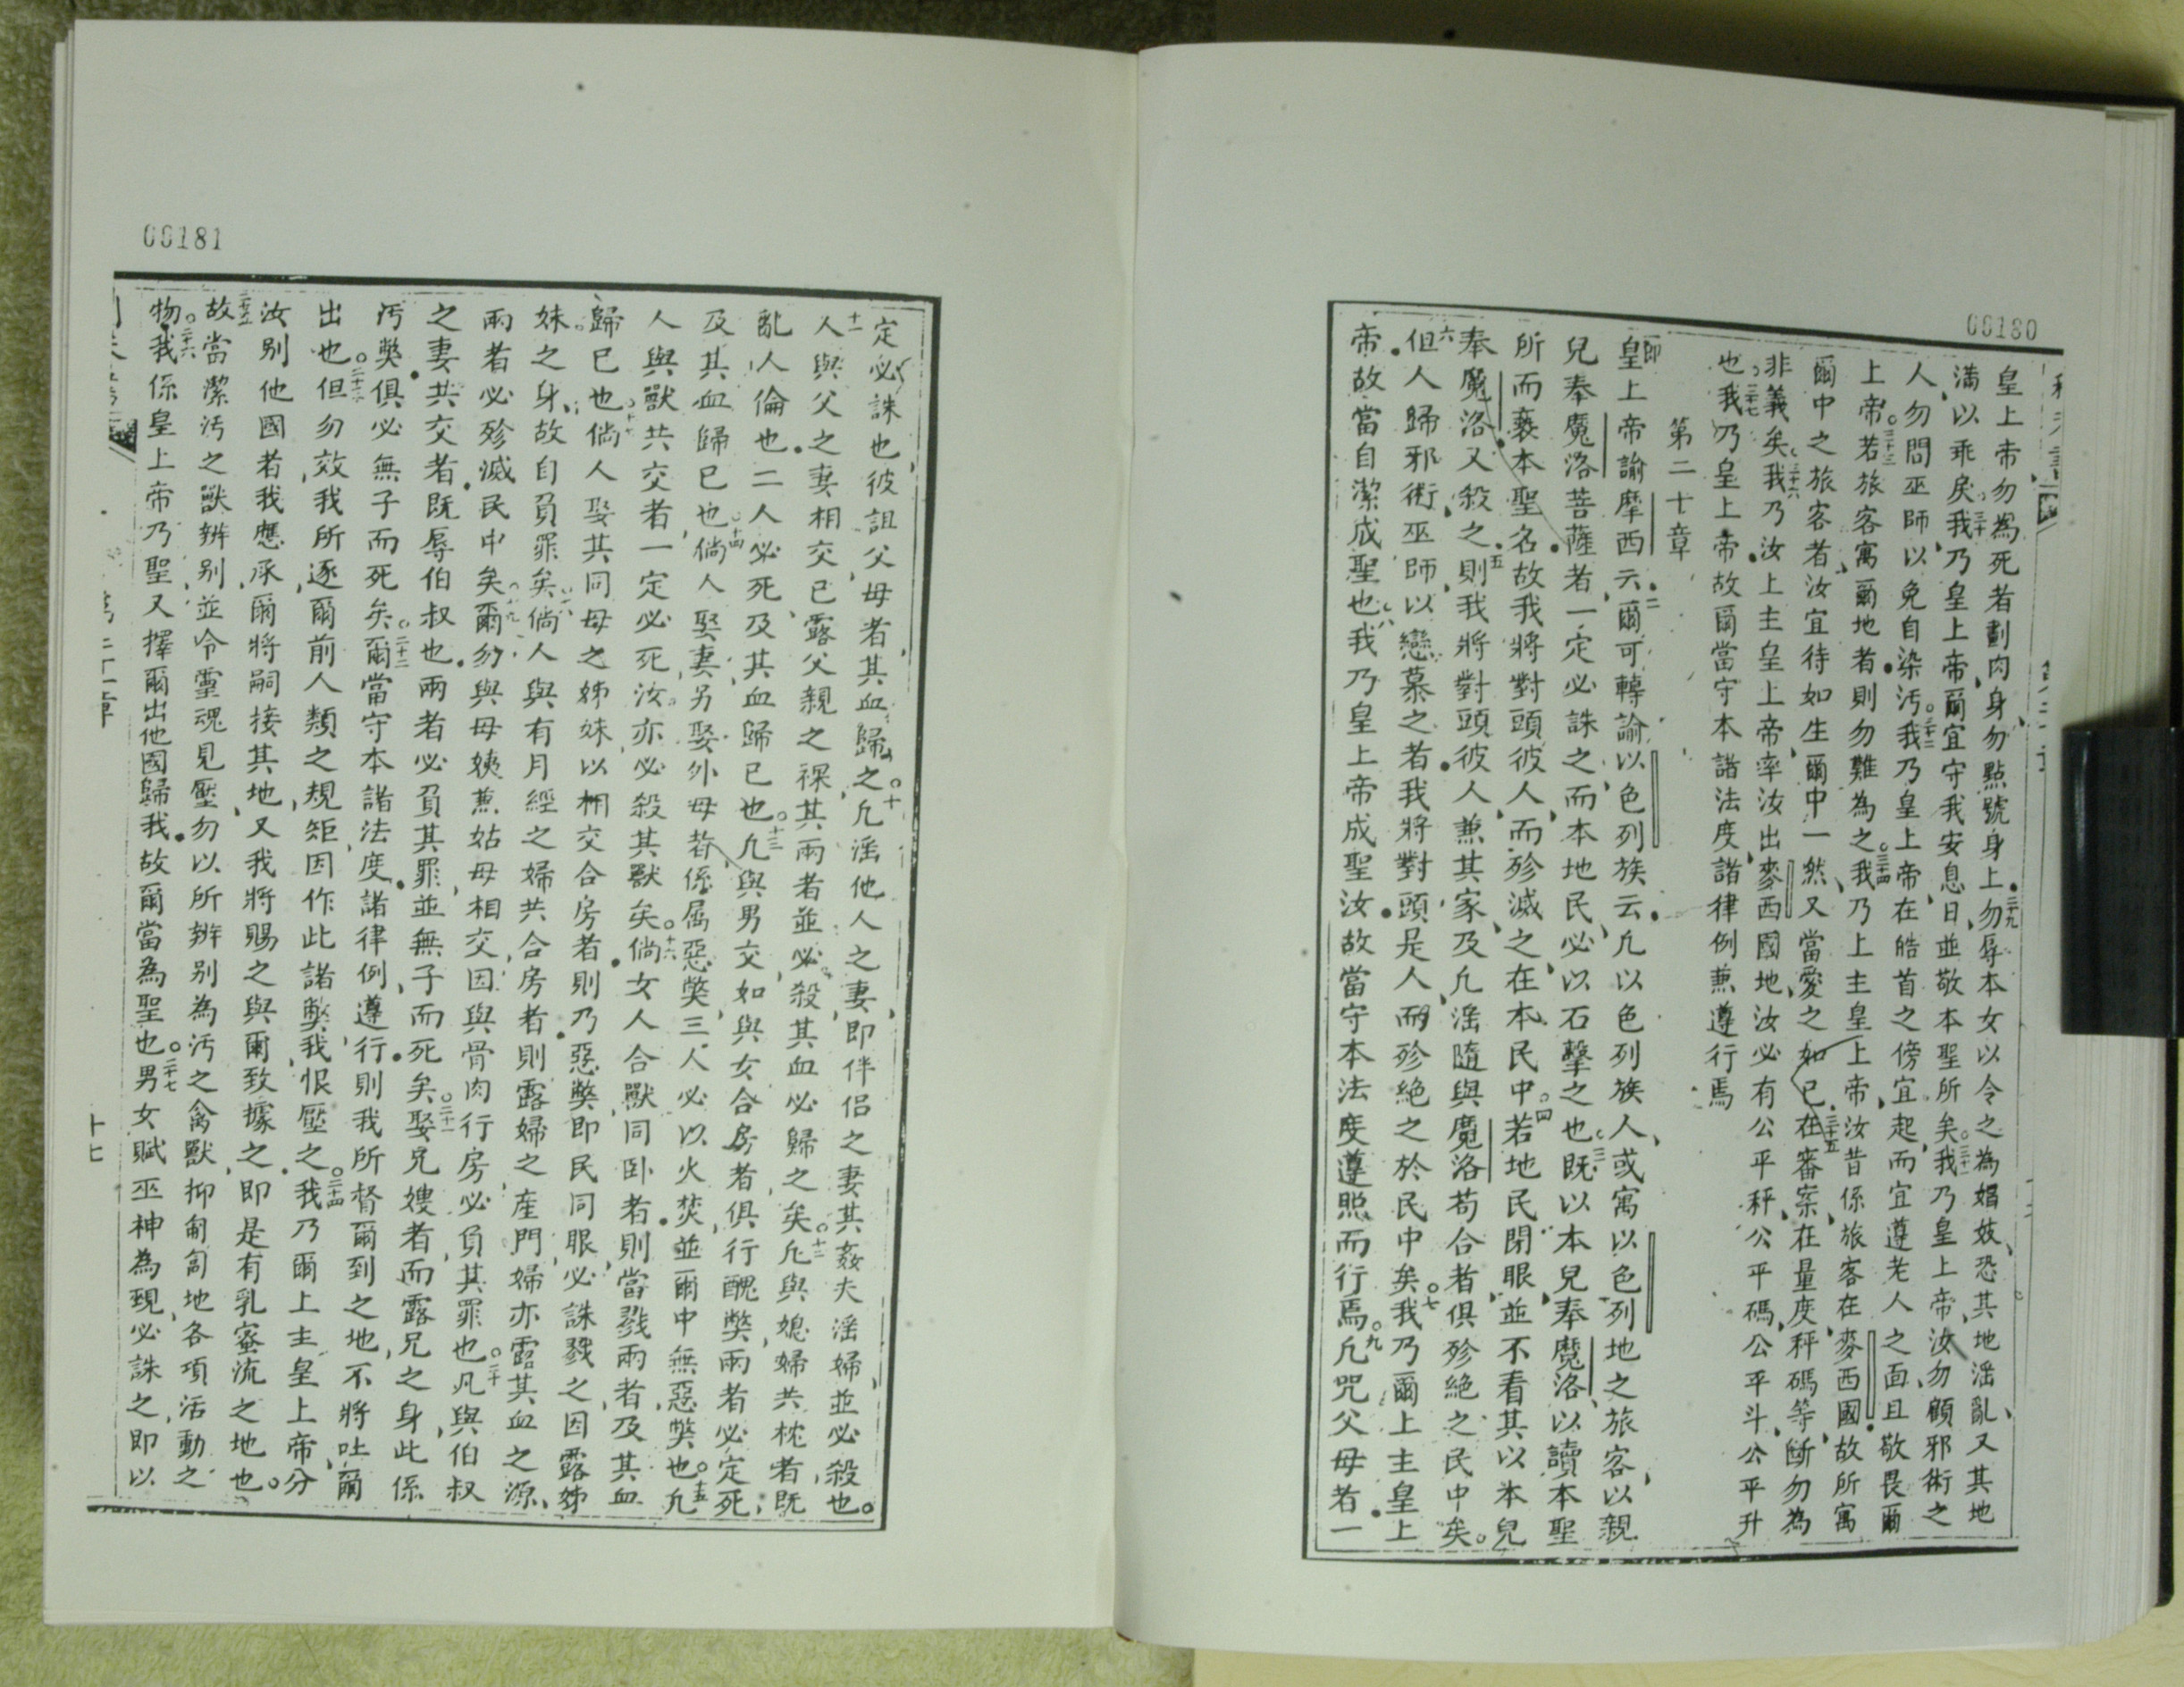 00180
皇上帝勿為死者劃肉身勿點號身上二九勿辱本女以令之為娼妓恐其地淫亂又其地
滿以乖戾三十我乃皇上帝爾宜守我安息日並敬本聖所矣三一我乃皇上帝汝勿顧邪術之
人勿問巫師以免自染汚三二我乃皇上帝在皓首之傍宜起而宜遵老人之面且敬畏爾
上帝三三若旅客寓爾地者則勿難為之三四我乃上主皇上帝汝昔係旅客在麥西國故所寓
爾中之旅客者汝宜待如生爾中一然又當愛之如己三五在審案在量度秤碼等斷勿為
非義矣三六我乃汝上主皇上帝率汝出麥西國地汝必有公平秤公平碼公平斗公平升
也三七我乃皇上帝故爾當守本諸法度諸律例兼遵行焉
第二十章
即皇上帝諭摩西云二爾可轉諭以色列族云凡以色列族人或寓以色列地之旅客以親
兒奉魔洛菩薩者一定必誅之而本地民必以石擊之也三既以本兒奉魔洛以讀本聖
所而褻本聖名故我將對頭彼人而殄滅之在本民中四若地民閉眼並不看其以本兒
奉魔洛又殺之五則我將對頭彼人兼其家及凡淫隨與魔洛苟合者俱殄絕之民中矣
六但人歸邪術巫師以戀慕之者我將對頭是人而殄絕之於民中矣七我乃爾上主皇上
帝故當自潔成聖也八我乃皇上帝成聖汝故當守本法度遵照而行焉九凡咒父母者一
00181
定必誅也彼詛父母者其血歸之十凡淫他人之妻即伴侶之妻其姦夫淫婦並必殺也
十一人與父之妻相交已露父親之裸其兩者並必殺其血必歸之矣十二凡與媳婦共枕者既
亂人倫也二人必死及其血歸已也十三凡與男交如與女合房者俱行醜弊兩者必定死
及其血歸已也十四倘人娶妻另娶外母者係屬惡弊三人必以火焚並爾中無惡弊也十五凡
人與獸共交者一定必死汝亦必殺其獸矣十六倘女人合獸同卧者則當戮兩者及其血
歸已也十七倘人娶其同母之姊妹以相交合房者則乃惡弊即民同眼必誅戮之因露姊
妹之身故自負罪矣十八倘人與有月經之婦共合房者則露婦之産門婦亦露其血之源
兩者必殄滅民中矣十九爾勿與母姨兼姑母相交因與骨肉行房必負其罪也二十凡與伯叔
之妻共交者既辱伯叔也兩者必負其罪並無子而死矣二十一娶兄嫂者而露兄之身此係
汚弊俱必無子而死矣二十二爾當守本諸法度諸律例遵行則我所督爾到之地不將吐爾
出也二十三但勿效我所逐爾前人類之規矩因作此諸弊我恨壓之二十四我乃爾上主皇上帝分
汝别他國者我應承爾將嗣接其地又我將賜之與爾致據之即是有乳蜜流之地也
二五故當潔汚之獸辨别並令靈魂見壓勿以所辨别為汚之禽獸抑匍匐地各項活動之
物二六我係皇上帝乃聖又擇爾出他國歸我故爾當為聖也二十七男女賦巫神為現必誅之即以
十七